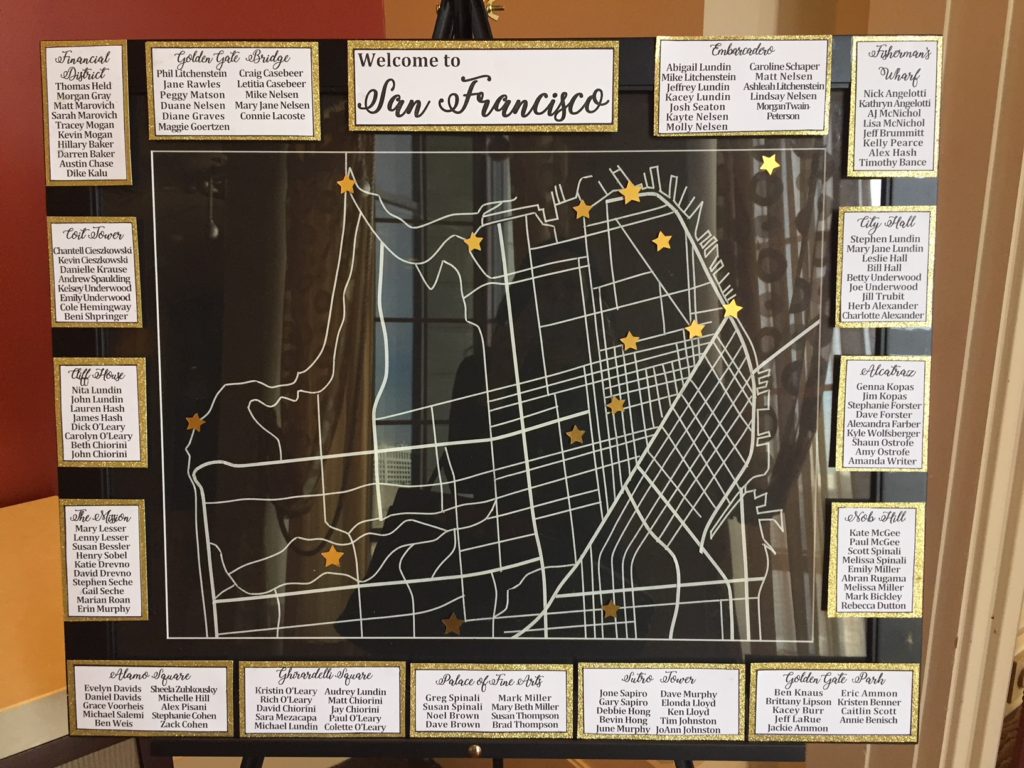 Welcome to
San Francisco
Financial
District
Thomas Held
Morgan Gray
Matt Marovich
Sarah Marovich
Tracey Mogan
Kevin Mogan
Hillary Baker
Darren Baker
Austin Chase
Dike Kalu
Golden Gate Bridge
Phil Litchenstein
Jane Rawles
Peggy Matson
Duane Nelsen
Diane Graves
Maggie Goertzen
Craig Casebeer
Letitia Casebeer
Mike Nelsen
Mary Jane Nelsen
Connie Lacoste
Embarcadero
Abigail Lundin
Mike Litchenstein
Jeffrey Lundin
Kacey Lundin
Josh Seaton
Kayte Nelsen
Molly Nelsen
Caroline Schaper
Matt Nelsen
Ashleah Litchenstein
Lindsay Nelsen
Morgan Twain
Peterson
Fisherman's
Wharf
Nick Angelotti
Kathryn Angelotti
AJ McNichol
Lisa McNichol
Jeff Brummitt
Kelly Pearce
Alex Hash
Timothy Bance
Coit Tower
Chantell Cieszkowski
Kevin Cieszkowski
Danielle Krause
Andrew Spaulding
Kelsey Underwood
Emily Underwood
Cole Hemingway
Beni Shpringer
City Hall
Stephen Lundin
Mary Jane Lundin
Leslie Hall
Bill Hall
Betty Underwood
Joe Underwood
Jill Trubit
Herb Alexander
Charlotte Alexander
Cliff House
Nita Lundin
John Lundin
Lauren Hash
James Hash
Dick O'Leary
Carolyn O'Leary
Beth Chiorini
John Chiorini
Alcatraz
Genna Kopas
Jim Kopas
Stephanie Forster
Dave Forster
Alexandra Farber
Kyle Wolfsberger
Shaun Ostrofe
Amy Ostrofe
Amanda Writer
The Mission
Mary Lesser
Lenny Lesser
Susan Bessler
Henry Sobel
Katie Drevno
David Drevno
Stephen Seche
Gail Seche
Marian Roan
Erin Murphy
Nob Hill
Kate McGee
Paul McGee
Scott Spinali
Melissa Spinali
Emily Miller
Abran Rugama
Melissa Miller
Mark Bickley
Rebecca Dutton
Alamo Square
Evelyn Davids
Daniel Davids
Grace Voorheis
Michael Salemi
Ben Weis
Sheela Zubkousky
Michelle Hill
Alex Pisani
Stephanie Cohen
Zack Cohen
Ghirardelli Square
Kristin O'Leary
Rich O'Leary
David Chiorini
Sara Mezacapa
Michael Lundin
Audrey Lundin
Matt Chiorini
Jay Chiorini
Paul O'Leary
Colette O'Leary
Palace of Fine Arts
Greg Spinali
Susan Spinali
Noel Brown
Dave Brown
Mark Miller
Mary Beth Miller
Susan Thompson
Brad Thompson
Sutro Tower
Jone Sapiro
Gary Sapiro
Debbie Hong
Bevin Hong
June Murphy
Dave Murphy
Elonda Lloyd
Ken Lloyd
Tim Johnston
JoAnn Johnston
Golden Gate Park
Ben Knaus
Brittany Lipson
Kacey Burr
Jeff LaRue
Jackie Ammon
Eric Ammon
Kristen Benner
Caitlin Scott
Annie Benisch